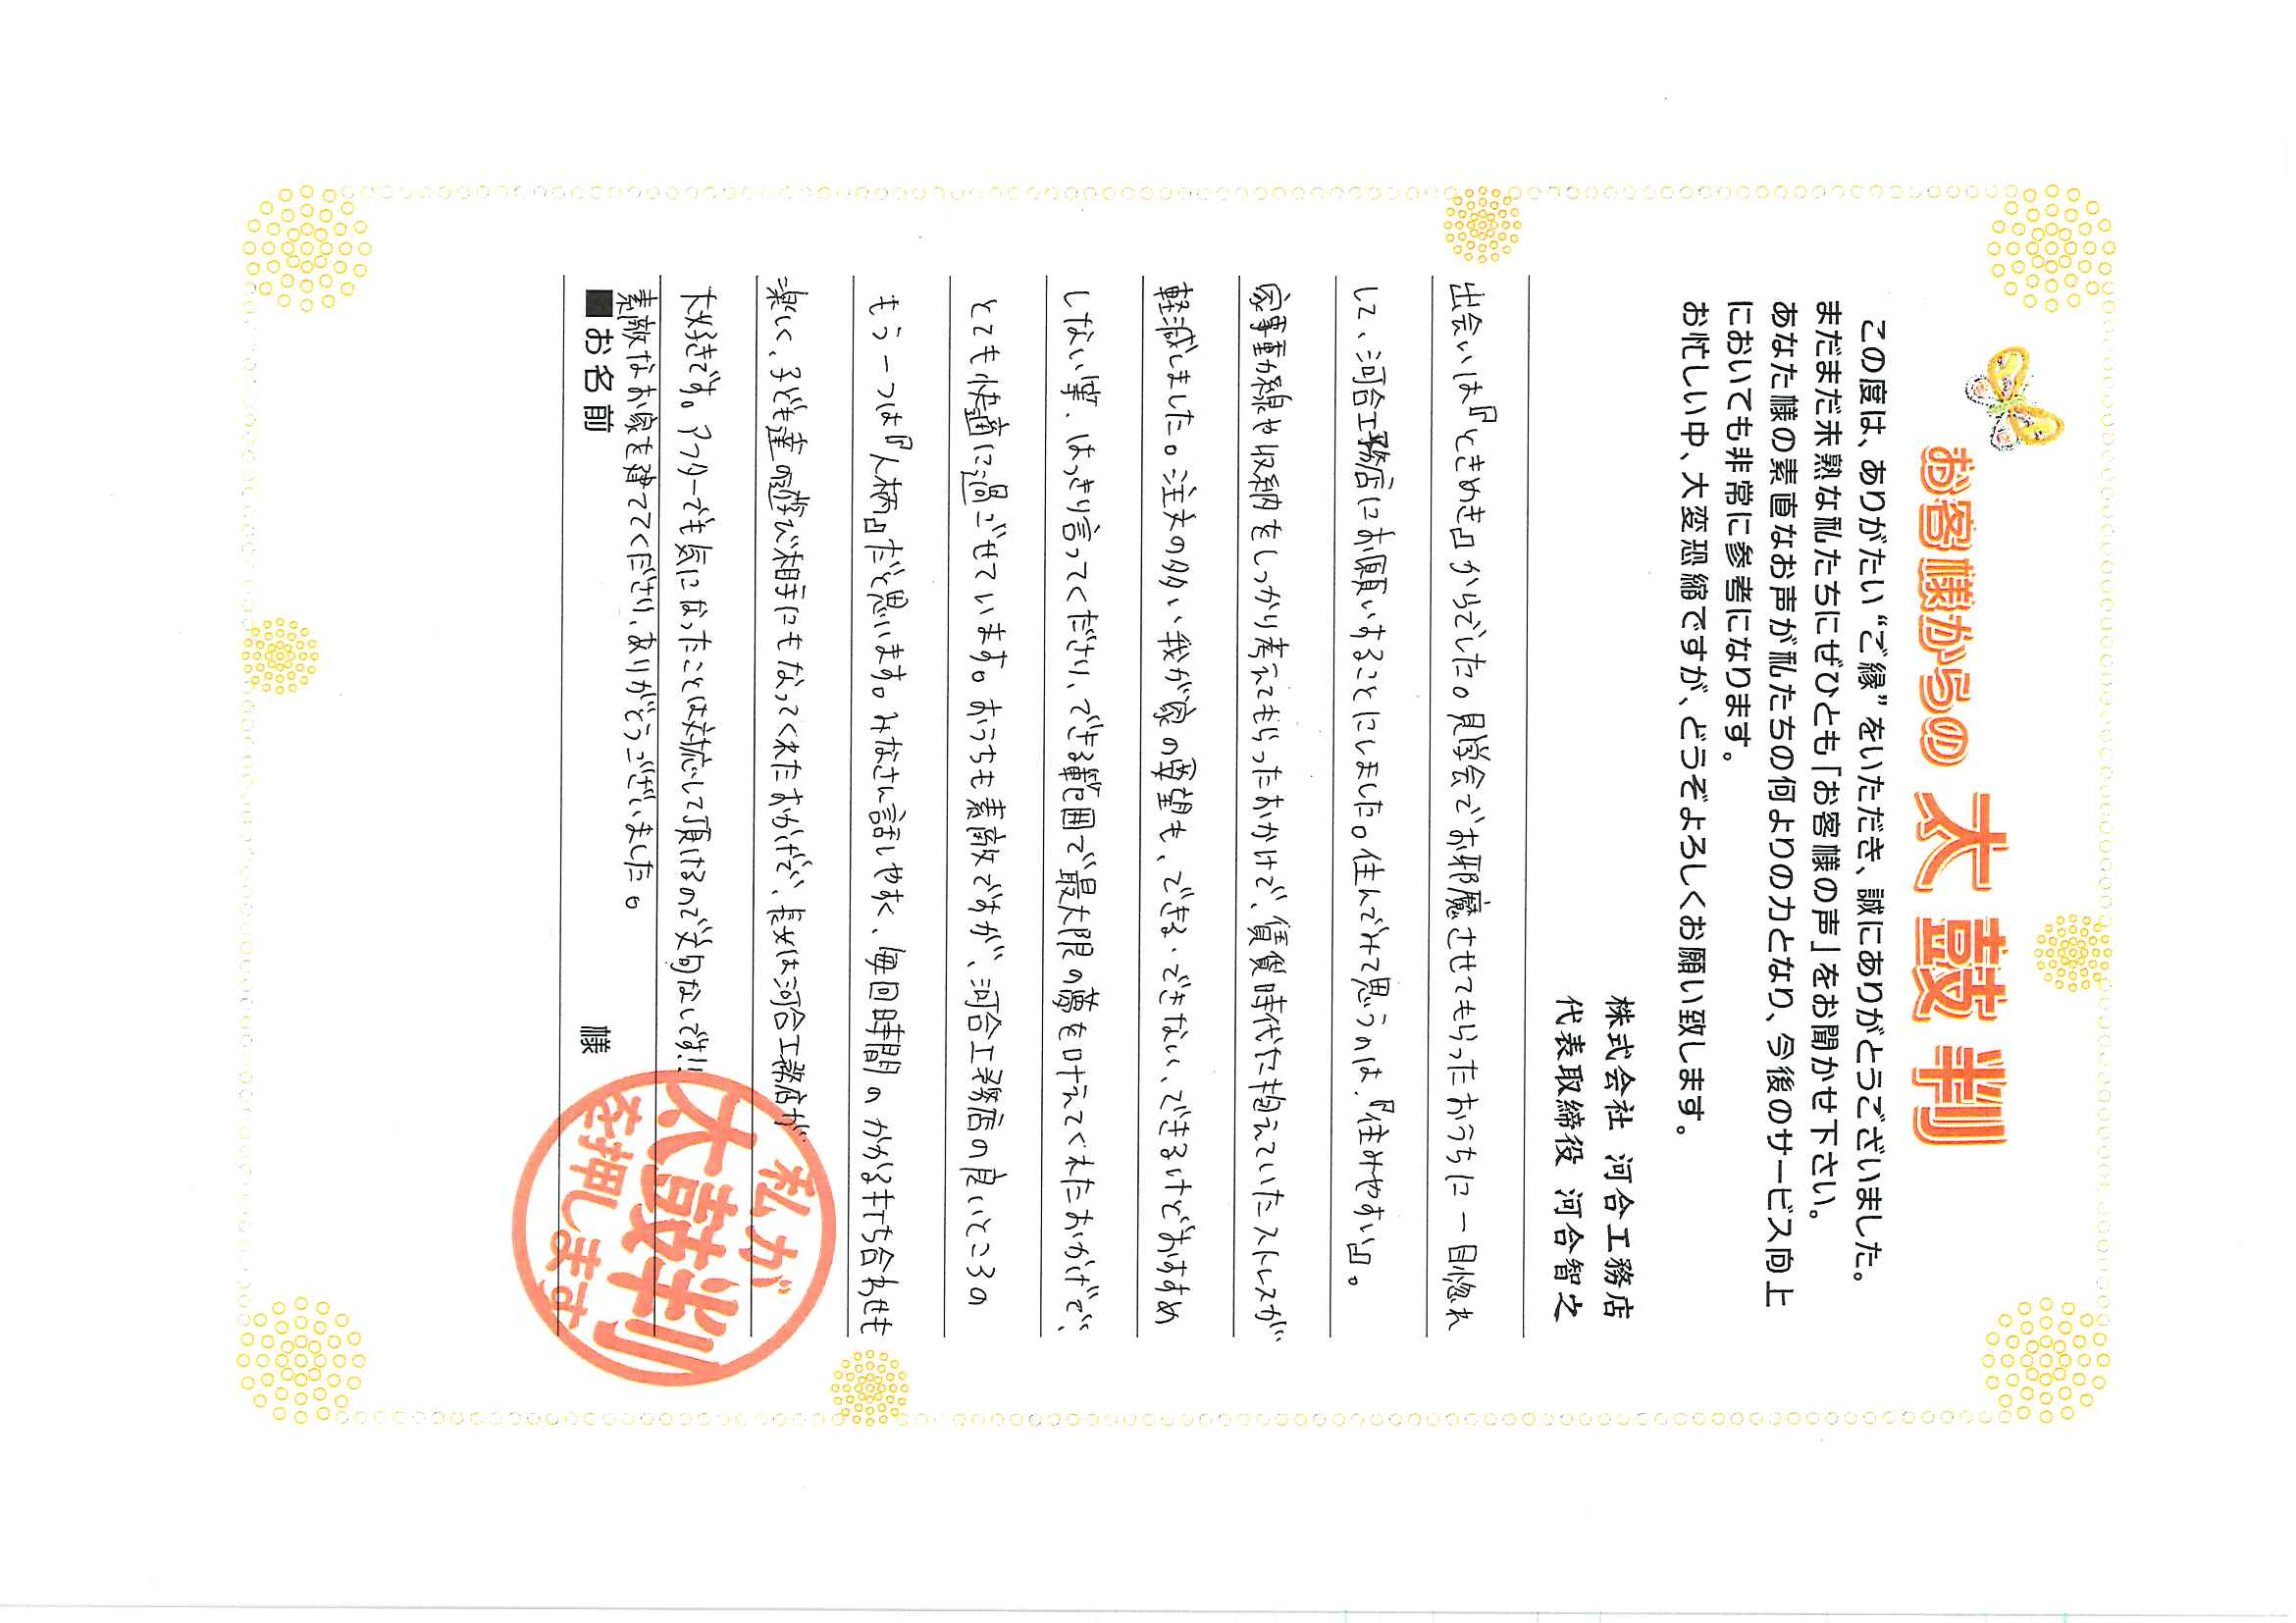 お客様からの 太鼓判
この度は、ありがたい“ご縁”をいただき、誠にありがとうございました。
まだまだ未熟な私たちにぜひとも「お客様の声」をお聞かせ下さい。
あなた様の素直なお声が私たちの何よりの力となり、今後のサービス向上
においても非常に参考になります。
お忙しい中、大変恐縮ですが、どうぞよろしくお願い致します。
株式会社 河合工務店
代表取締役 河合智之
出会いは『ときめき』からでした。見学会でお邪魔させてもらったおうちに一目惚れ
して、河合工務店にお願いすることにしました。住んでみて思うのは、『住みやすい』。
家事動線や収納をしっかり考えてもらったおかげで、賃貸時代に抱えていたストレスが
軽減しました。注文の多い我が家の要望も、できる・できない、できるけどおすすめ
しない等、はっきり言ってくださり、できる範囲で最大限の夢を叶えてくれたおかげで、
とても快適に過ごせています。おうちも素敵ですが、河合工務店の良いところの
もう一つは『人柄』だと思います。みなさん話しやすく、毎回時間のかかる打ち合わせも
楽しく、子ども達の遊び相手にもなってくれたおかげで、長女は河合工務店が
大好きです。アフターでも気になったことは対応して頂けるので文句なしです!!
素敵なお家を建ててくださり、ありがとうございました。
■お名前 様
私が
太鼓判
を押します